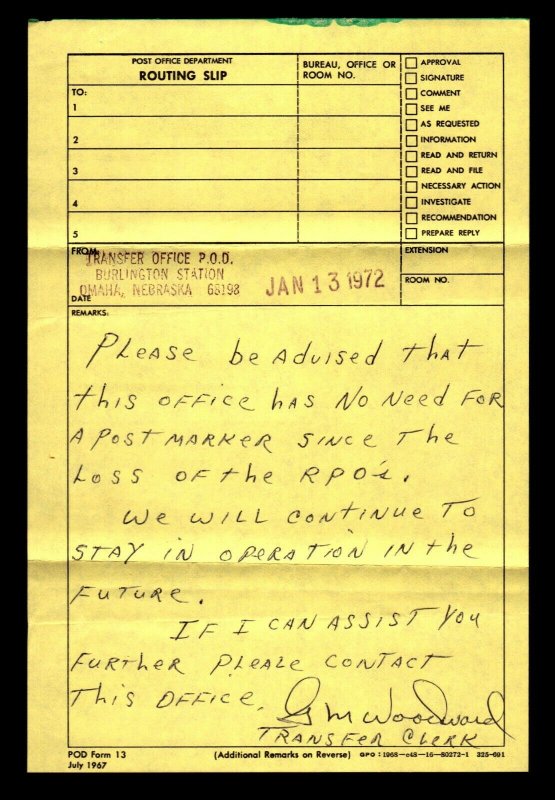 POST OFFICE DEPARTMENT
ROUTING SLIP
BUREAU, OFFICE OR
ROOM NO.
APPROVAL
SIGNATURE
COMMENT
SEE ME
AS REQUESTED
INFORMATION
READ AND RETURN
READ AND FILE
NECESSARY ACTION
INVESTIGATE
RECOMMENDATION
PREPARE REPLY
TO:
1
2
3
4
5
FROM:
TRANSFER OFFICE P.O.D.
BURLINGTON STATION
OMAHA, NEBRASKA 68198
JAN 13 1972
DATE
EXTENSION
ROOM NO.
REMARKS:
PLEASE be AdvISed tHAT
this OFFICE HAS NO Need FOR
A POST MARKER SINCE THE
LOSS OF the RPO's.
We WILL CONTINUE TO
STAY IN OPERATION IN the
FUTURE.
IF I CAN ASSIST YOU
FURTHER PLEASE CONTACT
THIS OFFICE.
G M Woodward
TRANSFER CLERK
POD Form 13
July 1967
(Additional Remarks on Reverse)
GPO : 1968-c48-16-80272-1 325-691